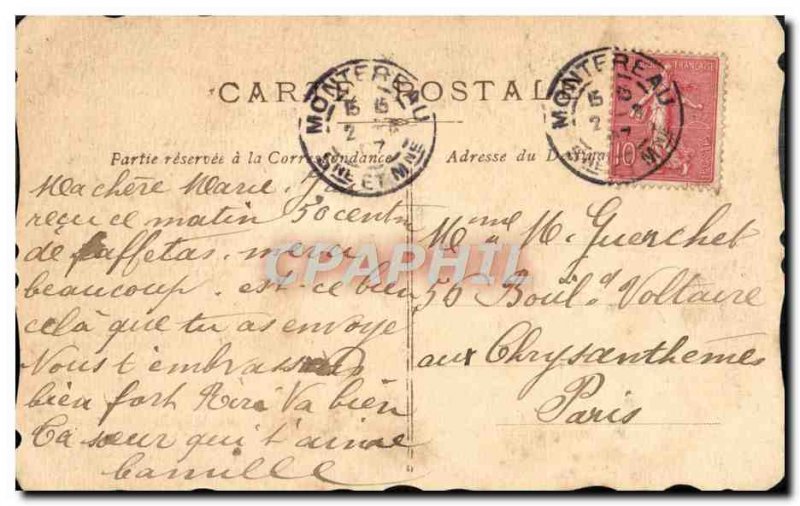 CARTE POSTALE
MONTEREAU
15 15
2
7
SNE ET MNE
MONTEREAU
15
2
7
SNE ET MNE
FRANÇAISE
10
Partie réservée à la Correspondance
Adresse du
Ma chère Marie. J'ai
reçu ce matin 50 centi
de taffetas. merci
beaucoup. est-ce bien
celà que tu as envoye
Nous t'embrassons
bien fort Riri Va bien
Ta sœur qui t'aime
Camille
Mme M. Guerchet
50 Boul d Voltaire
aux Chrysanthèmes
Paris
CPAPHIL